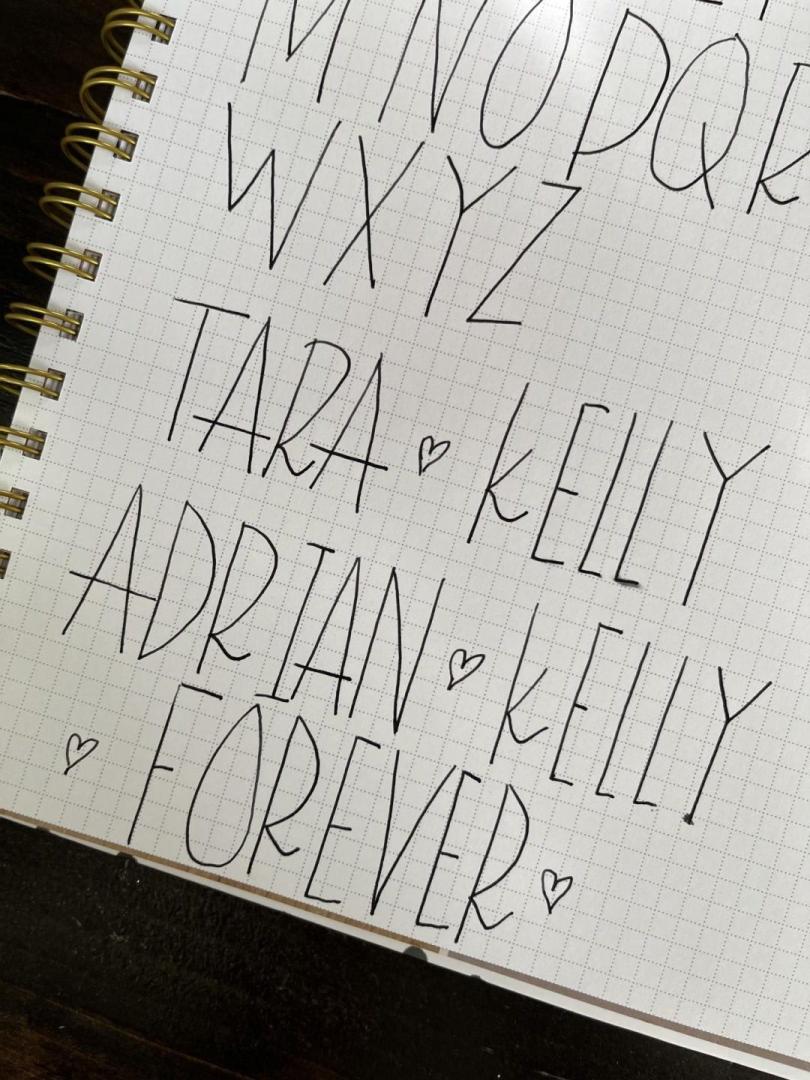 M N O P Q R
W X Y Z
TARA ♡ KELLY
ADRIAN ♡ KELLY
♡ FOREVER ♡